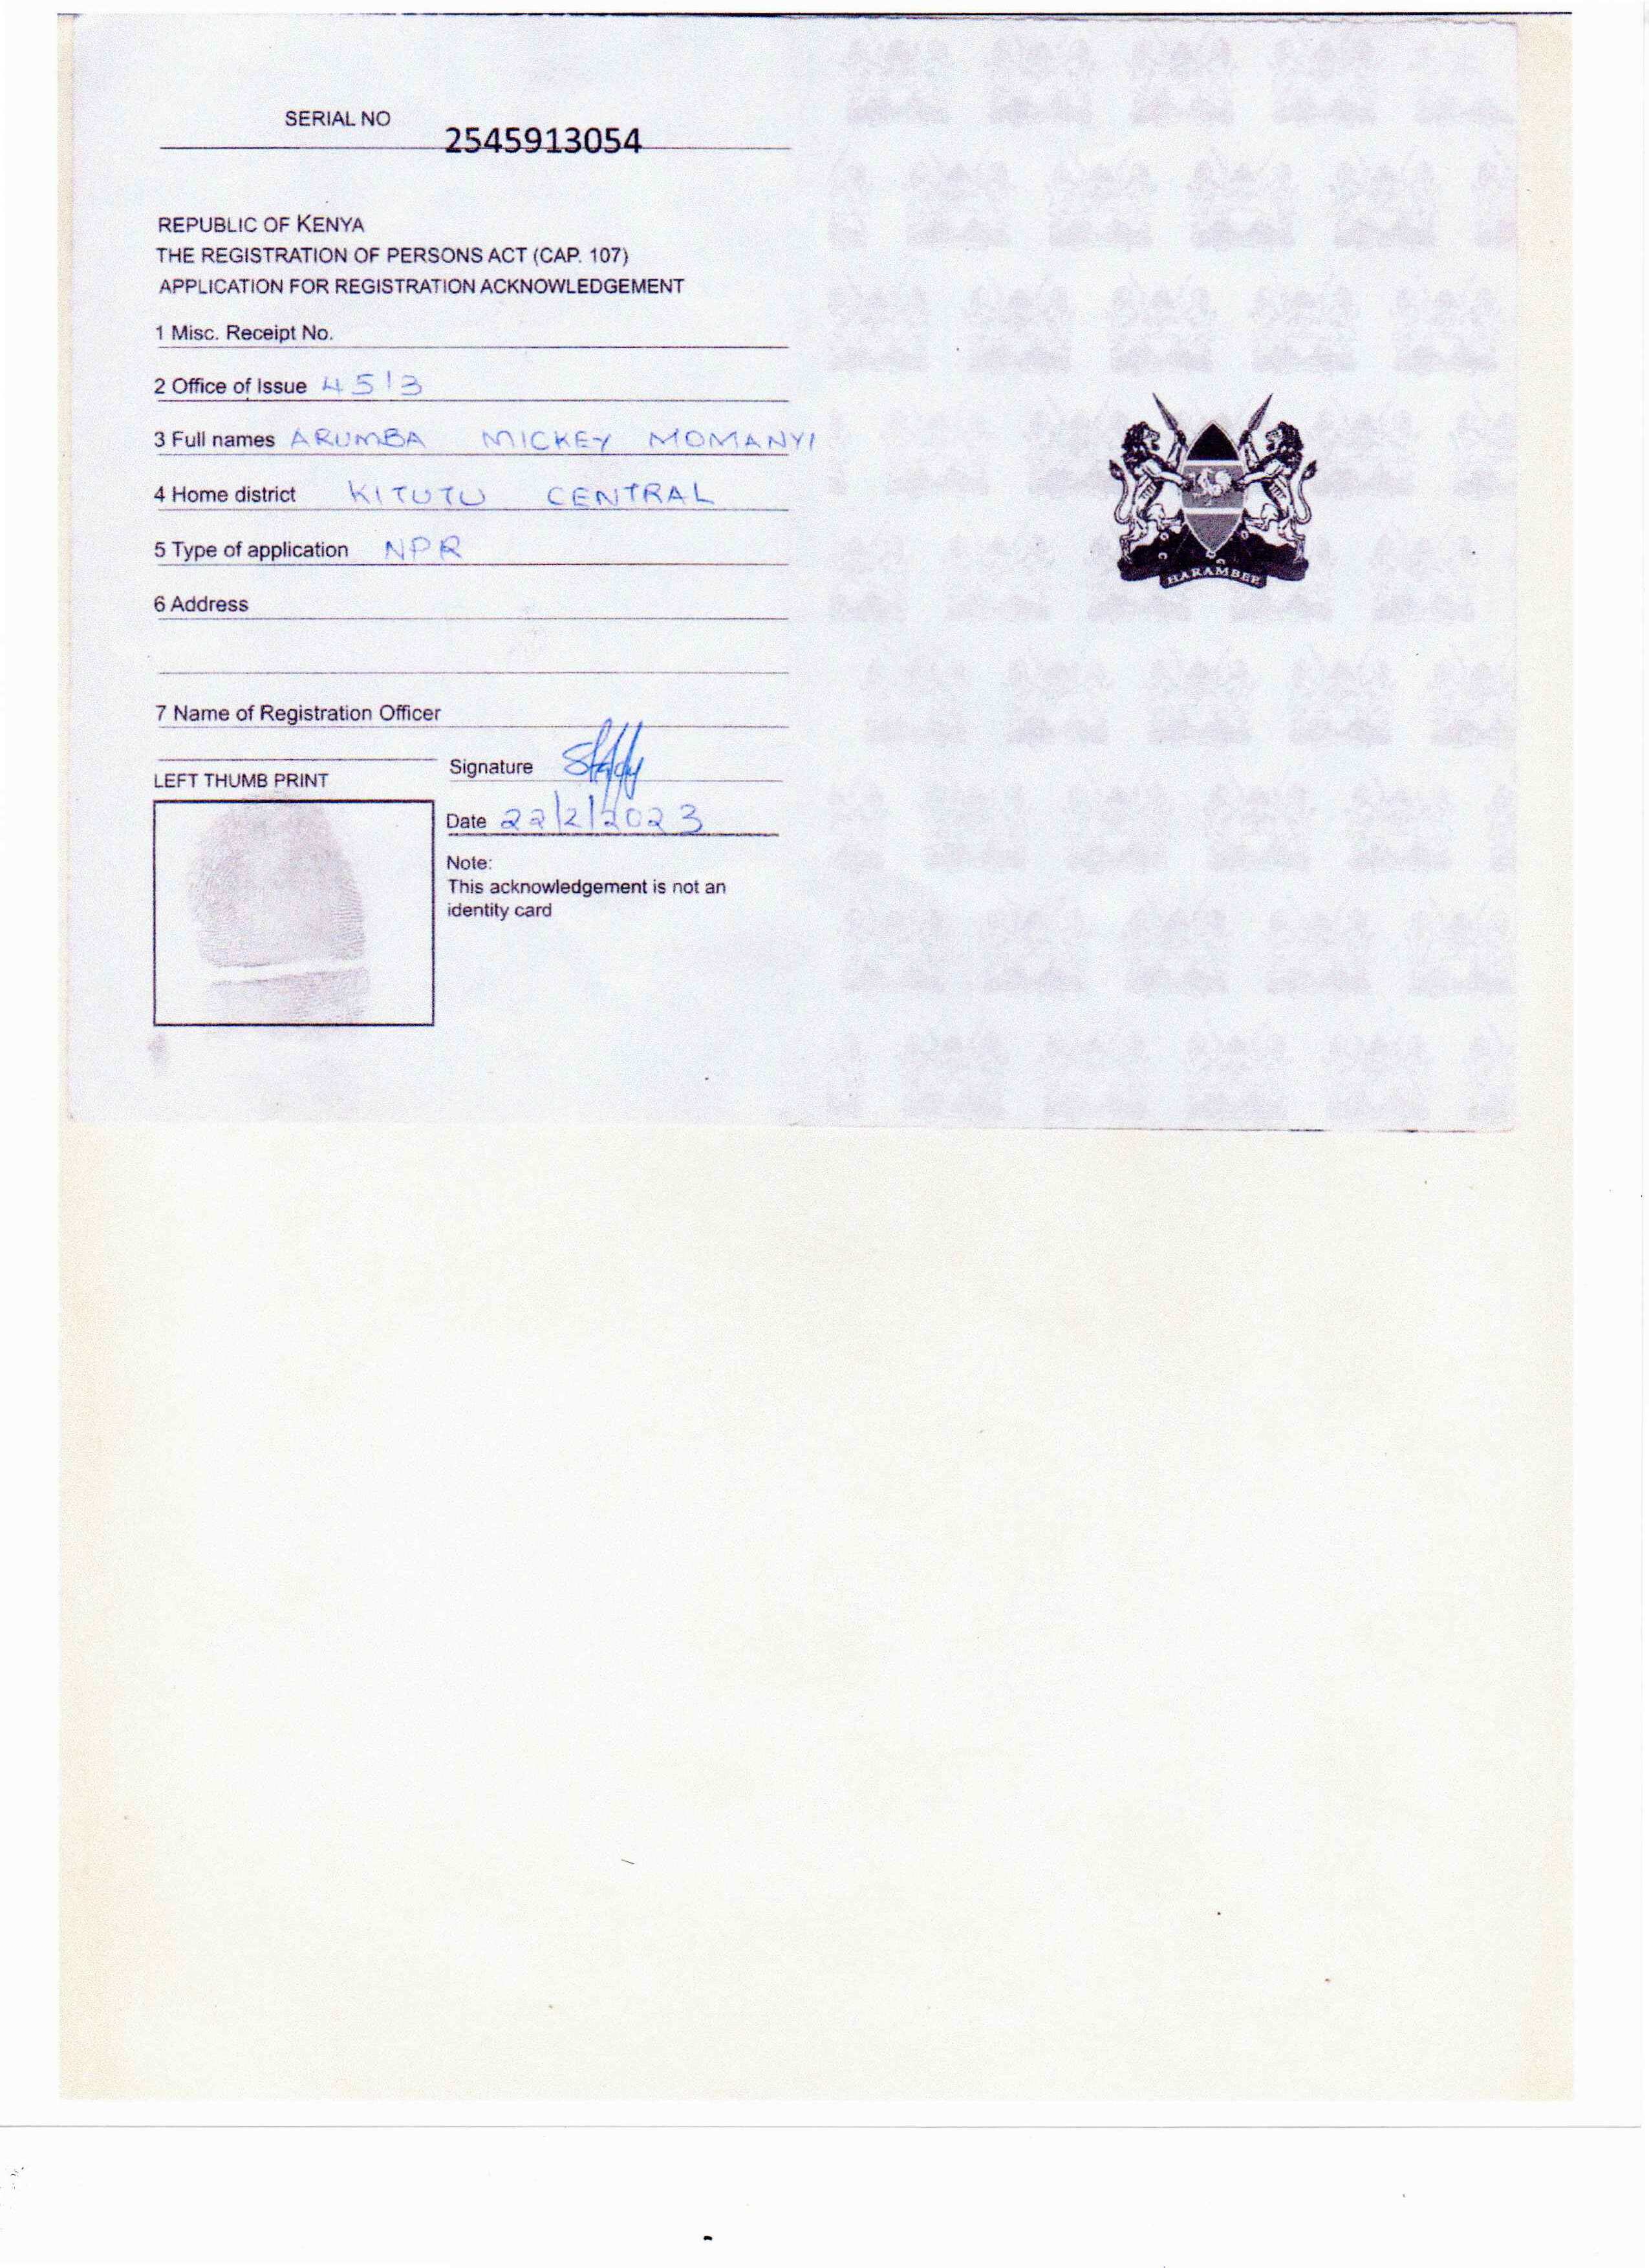 SERIAL NO 2545913054
REPUBLIC OF KENYA
THE REGISTRATION OF PERSONS ACT (CAP. 107)
APPLICATION FOR REGISTRATION ACKNOWLEDGEMENT
1 Misc. Receipt No.
2 Office of Issue 4513
3 Full names ARUMBA MICKEY MOMANYI
4 Home district KITUTU CENTRAL
5 Type of application NPR
6 Address
7 Name of Registration Officer
Signature
LEFT THUMB PRINT
Date 22/2/2023
Note:
This acknowledgement is not an
identity card
HARAMBEE